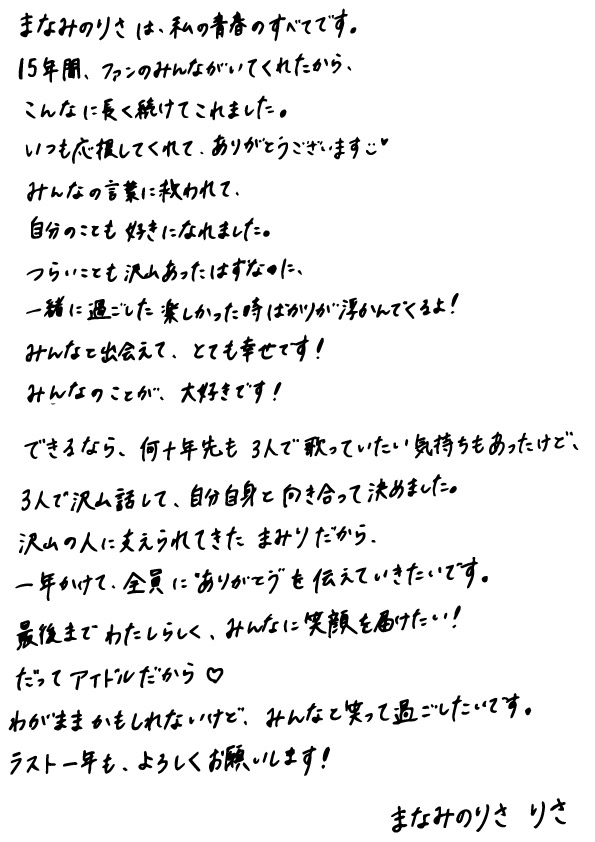 まなみのりさは、私の青春のすべてです。
15年間、ファンのみんながいてくれたから、
こんなに長く続けてこれました。
いつも応援してくれて、ありがとうございます☺♥
みんなの言葉に救われて、
自分のことも好きになれました。
つらいことも沢山あったはずなのに、
一緒に過ごした楽しかった時ばかりが浮かんでくるよ!
みんなと出会えて、とても幸せです!
みんなのことが、大好きです!
できるなら、何十年先も3人で歌っていたい気持ちもあったけど、
3人で沢山話して、自分自身と向き合って決めました。
沢山の人に支えられてきたまみりだから、
一年かけて、全員に"ありがとう"を伝えていきたいです。
最後までわたしらしく、みんなに笑顔を届けたい!
だってアイドルだから♡
わがままかもしれないけど、みんなと笑って過ごしたいです。
ラスト一年も、よろしくお願いします!
まなみのりさ りさ